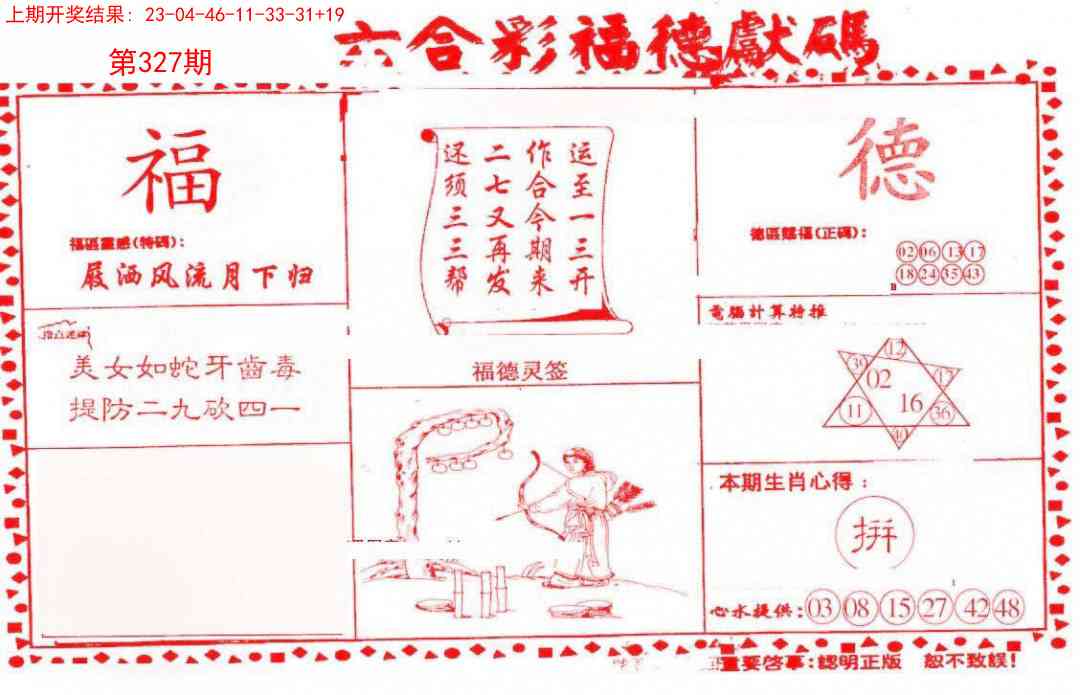 上期开奖结果: 23-04-46-11-33-31+19
第327期
六合彩福德獻碼
福
福區靈感(特碼):
屐洒风流月下归
美女如蛇牙齒毒
提防二九砍四一
运至一三开
作合今期来
二七又再发
还须三三帮
福德灵签
德
德區賜福(正碼):
02 06 13 17
18 24 35 43
電腦計算特推
12
39 02 17
11 16 36
40
本期生肖心得:
拼
心水提供: 03 08 15 27 42 48
重要啓事:認明正版 恕不致誤!